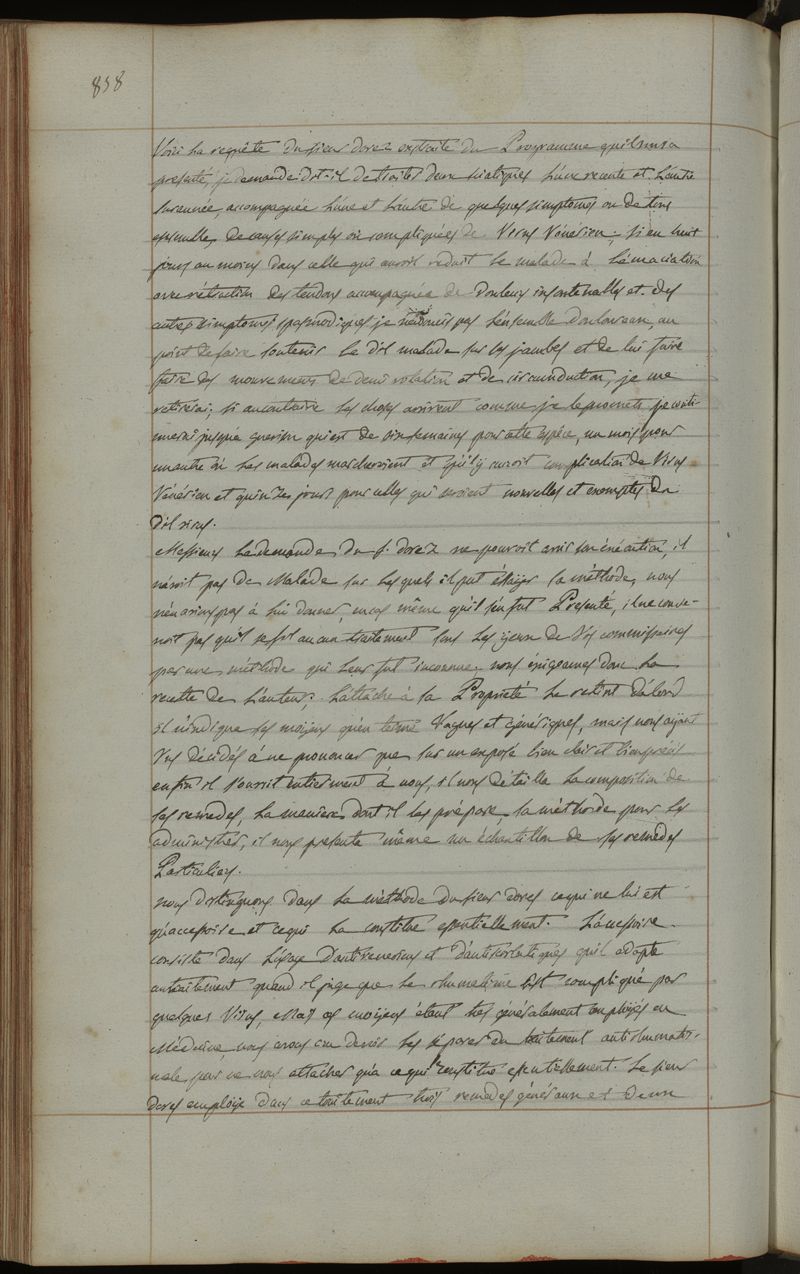 858
Voici la requête du sieur dorez extraite du Programme qu'il nous a
presenté, je demande dit-il de traiter deux sciatiques l'une recente et l'autre
surannée, accompagnée l'une et l'autre de quelques simptomes ou de tous
ensemble, de causes simples ou compliquées de Virus Vénérien; si en huit
jours au moins dans celle qui auroit reduit le malade à l'émaciation
avec rétraction des tendons accompagnée de Douleurs insoutenables et des
autres simptomes spasmodiques je n'adoucis pas l'ensemble douloureux, au
point de faire soutenir le dit malade sur les jambes et de lui faire
faire des mouvements de demi rotation et de circumduction, je me
retirerai, si au contraire les choses arrivent comme je le promets je conti-
nuerai jusqu'a guerison qui est de six semaines pour cette espéce, un mois pour
une autre où les malades marcheroient et qu'il y auroit complication de Virus
Vénérien et quinze jours pour celles qui seroient nouvelles et exemptes du
dit virus.
Messieurs la demande du s. dorez ne pouvoit avoir son éxécution, il
n'avoit pas de Malade sur lesquels il put éssayer sa méthode, nous
n'en avions pas à lui donner, un cas même qu'il s'en fut Presenté, il ne conve-
noit pas qu'il se fit aucun traitement sous les yeux de Vos commissaires
par une méthode qui leur fut inconnue. nous éxigeames donc la
recette de l'auteur; l'attache à sa Propriété le retint d'abord
il n'indiqua ses moyens qu'en termes Vagues et génériques, mais nous ayant
Vus décidés à ne prononcer que sur un exposé bien clair et bien précis
enfin il s'ouvrit entierement à nous, il nous détailla la composition de
ses remedes, la maniere dont il les prépare, sa méthode pour les
administrer, il nous presenta même un échantillon de ses remedes
Particuliers.
nous distinguons dans la méthode du sieur dorez ce qui ne lui est
qu'accessoire et ce qui la constitue essentiellement. L'accessoire
consiste dans l'usage d'antiveneriens et d'antiscorbutiques qu'il adapte
au traitement quand il juge que le rhumatisme est compliqué par
quelques Virus, Mais ces moyens étant tres généralement employés en
Médecine nous avons cru devoir les séparer du traitement antirhumatis-
male pour ne nous attacher qu'a ce qui constitue essentiellement. Le sieur
dorez employe dans ce traitement trois remedes généraux et deux